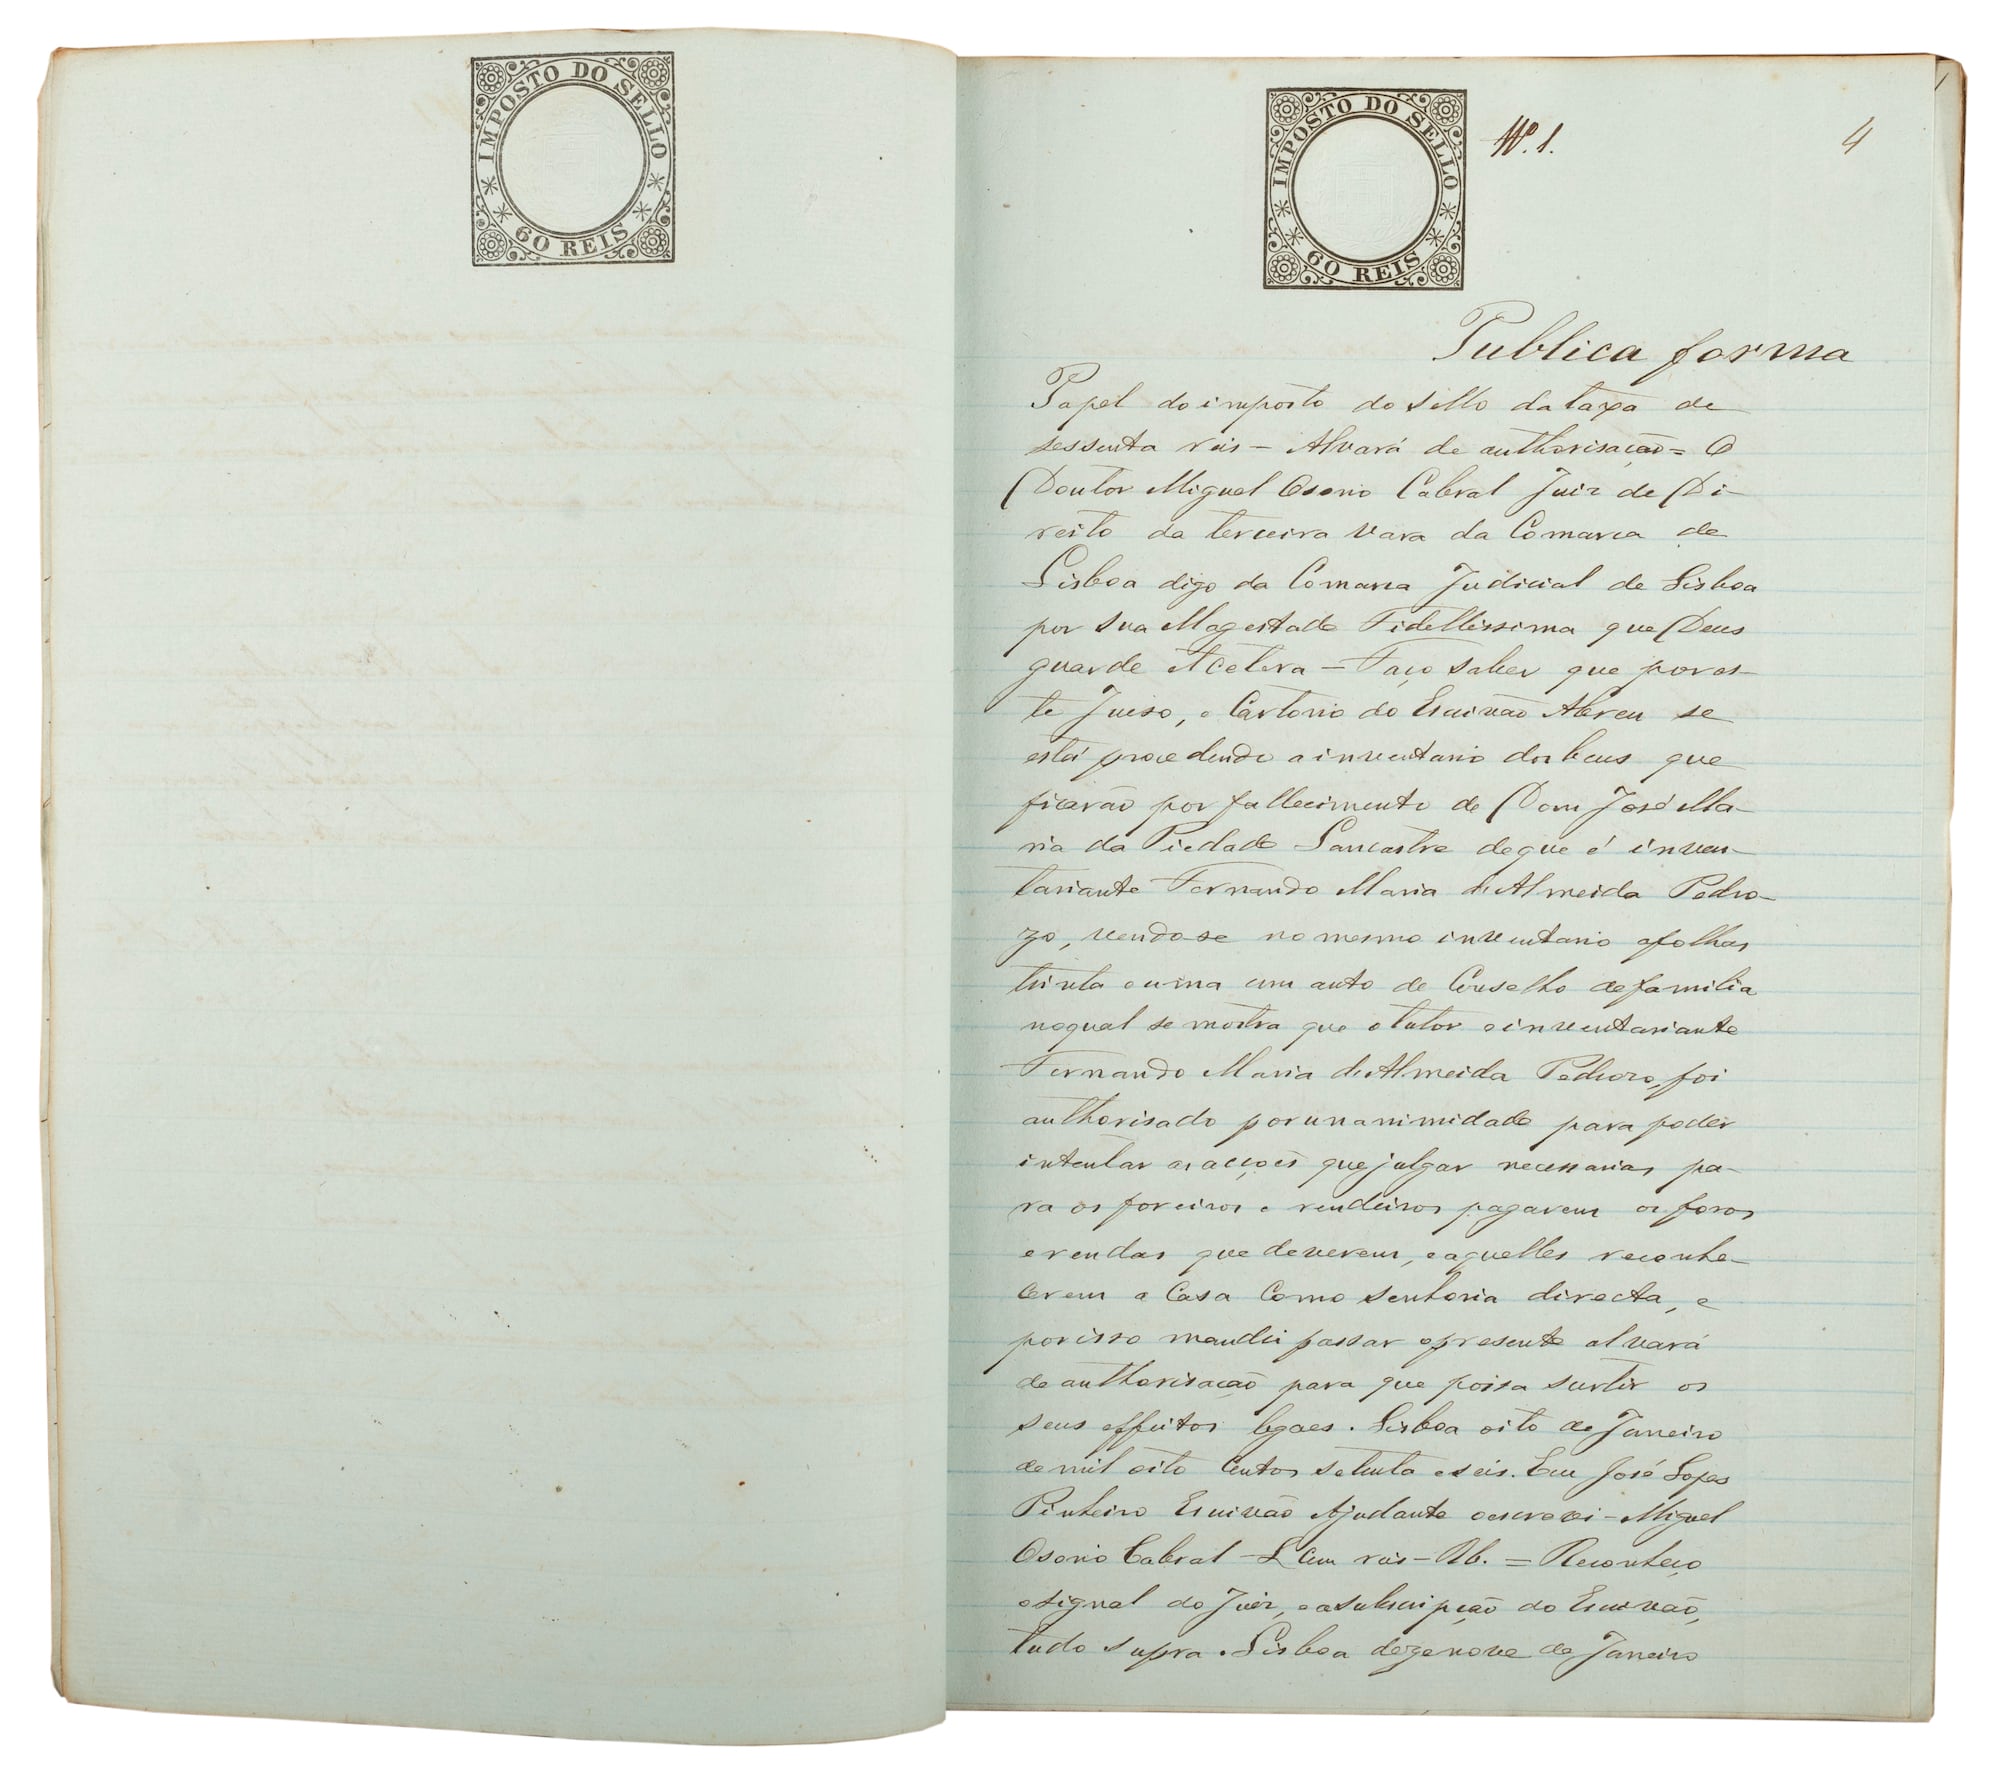 IMPOSTO DO SELLO
60 REIS
IMPOSTO DO SELLO
60 REIS
Nº. 1.
4
Publica forma
Papel do imposto do sello da taxa de
sessenta reis – Alvará de authorisação = O
Doutor Miguel Osorio Cabral Juiz de Di-
reito da terceira vara da Comarca de
Lisboa digo da Comarca Judicial de Lisboa
por sua Magestade Fidellissima que Deus
guarde etcetera – Faço saber que por es-
te Juiso, e Cartorio do Escrivão Abreu se
está procedendo a inventario dos bens que
ficarão por fallecimento de Dom José Ma-
ria da Piedade Lancastre de que é inven-
tariante Fernando Maria de Almeida Pedro-
zo, vendo-se no mesmo inventario a folhas
trinta e uma um auto de Conselho de familia
no qual se mostra que o tutor e inventariante
Fernando Maria de Almeida Pedrozo, foi
authorisado por unanimidade para poder
intentar as acções que julgar necessarias pa-
ra os foreiros e rendeiros pagarem os foros
e rendas que deverem, e aquelles reconhe-
cerem a Casa como senhoria directa, e
por isso mandei passar o presente alvará
de authorisação para que possa surtir os
seus effeitos legaes. Lisboa oito de Janeiro
de mil oito centos setenta e seis. Eu José Lopes
Pinheiro Escrivão Ajudante o escrevi – Miguel
Osorio Cabral – L cem reis – Ab. = Reconheço
o signal do Juiz, e a subscripção do Escrivão,
tudo supra. Lisboa dezenove de Janeiro